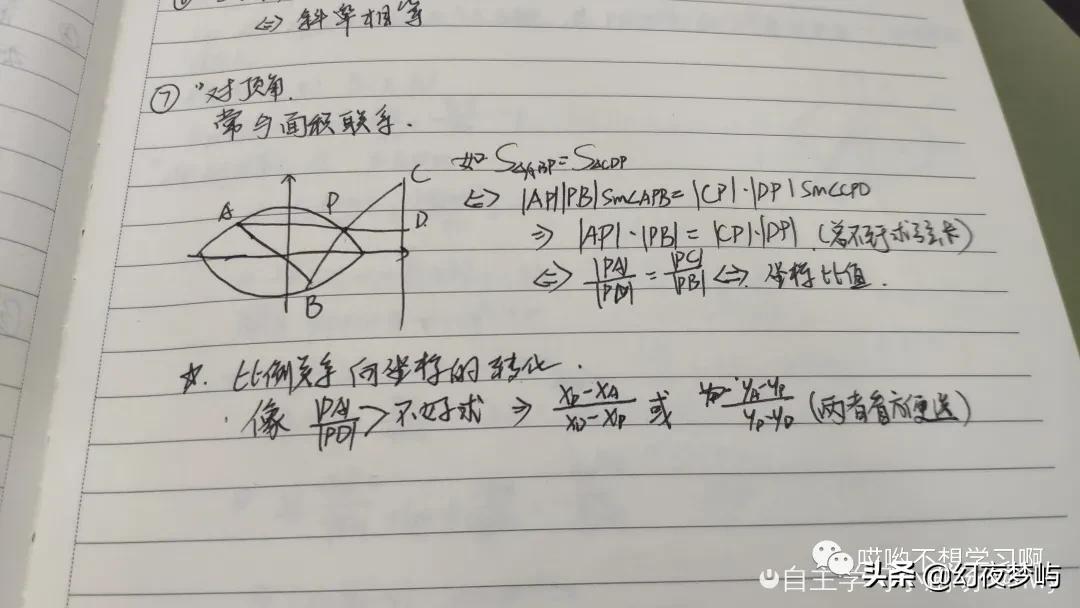 ⇔ 斜率相等
⑦ "对顶角.
常与面积联系.
如 S△ABP=S△CDP
⇔ |AP||PB|sin∠APB=|CP|·|DP|sin∠CPD
⇒ |AP|·|PB|=|CP|·|DP|.
⇔ |PA|/|PD|=|PC|/|PB| ⇔ 坐标比值.
A P C D B
☆. 比例关系向坐标的转化.
· 像 |PA|/|PD| > 不好求 ⇒ xP-xA/xD-xP 或 yA-yP/yP-yD (两者看方便选)
哎哟不想学习啊
头条 @幻夜梦屿
自主学